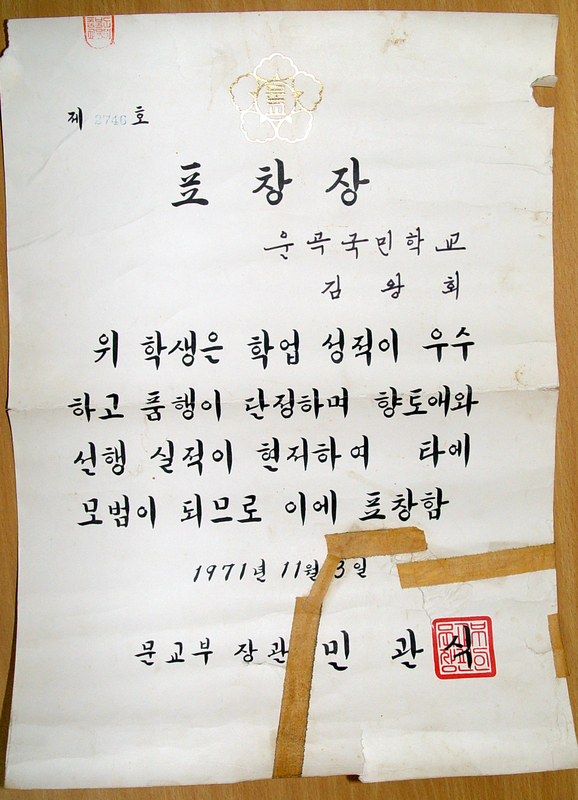 제 2746 호
표창장
운곡국민학교
김왕회
위 학생은 학업 성적이 우수
하고 품행이 단정하며 향토애와
선행 실적이 현저하여 타에
모범이 되므로 이에 표창함
1971년 11월 3일
문교부 장관 민관식